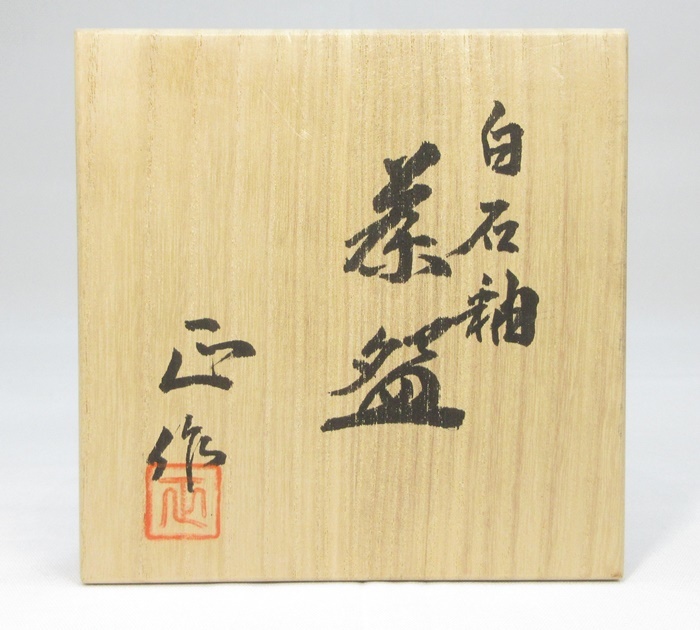 白石釉
茶盌
正作
正